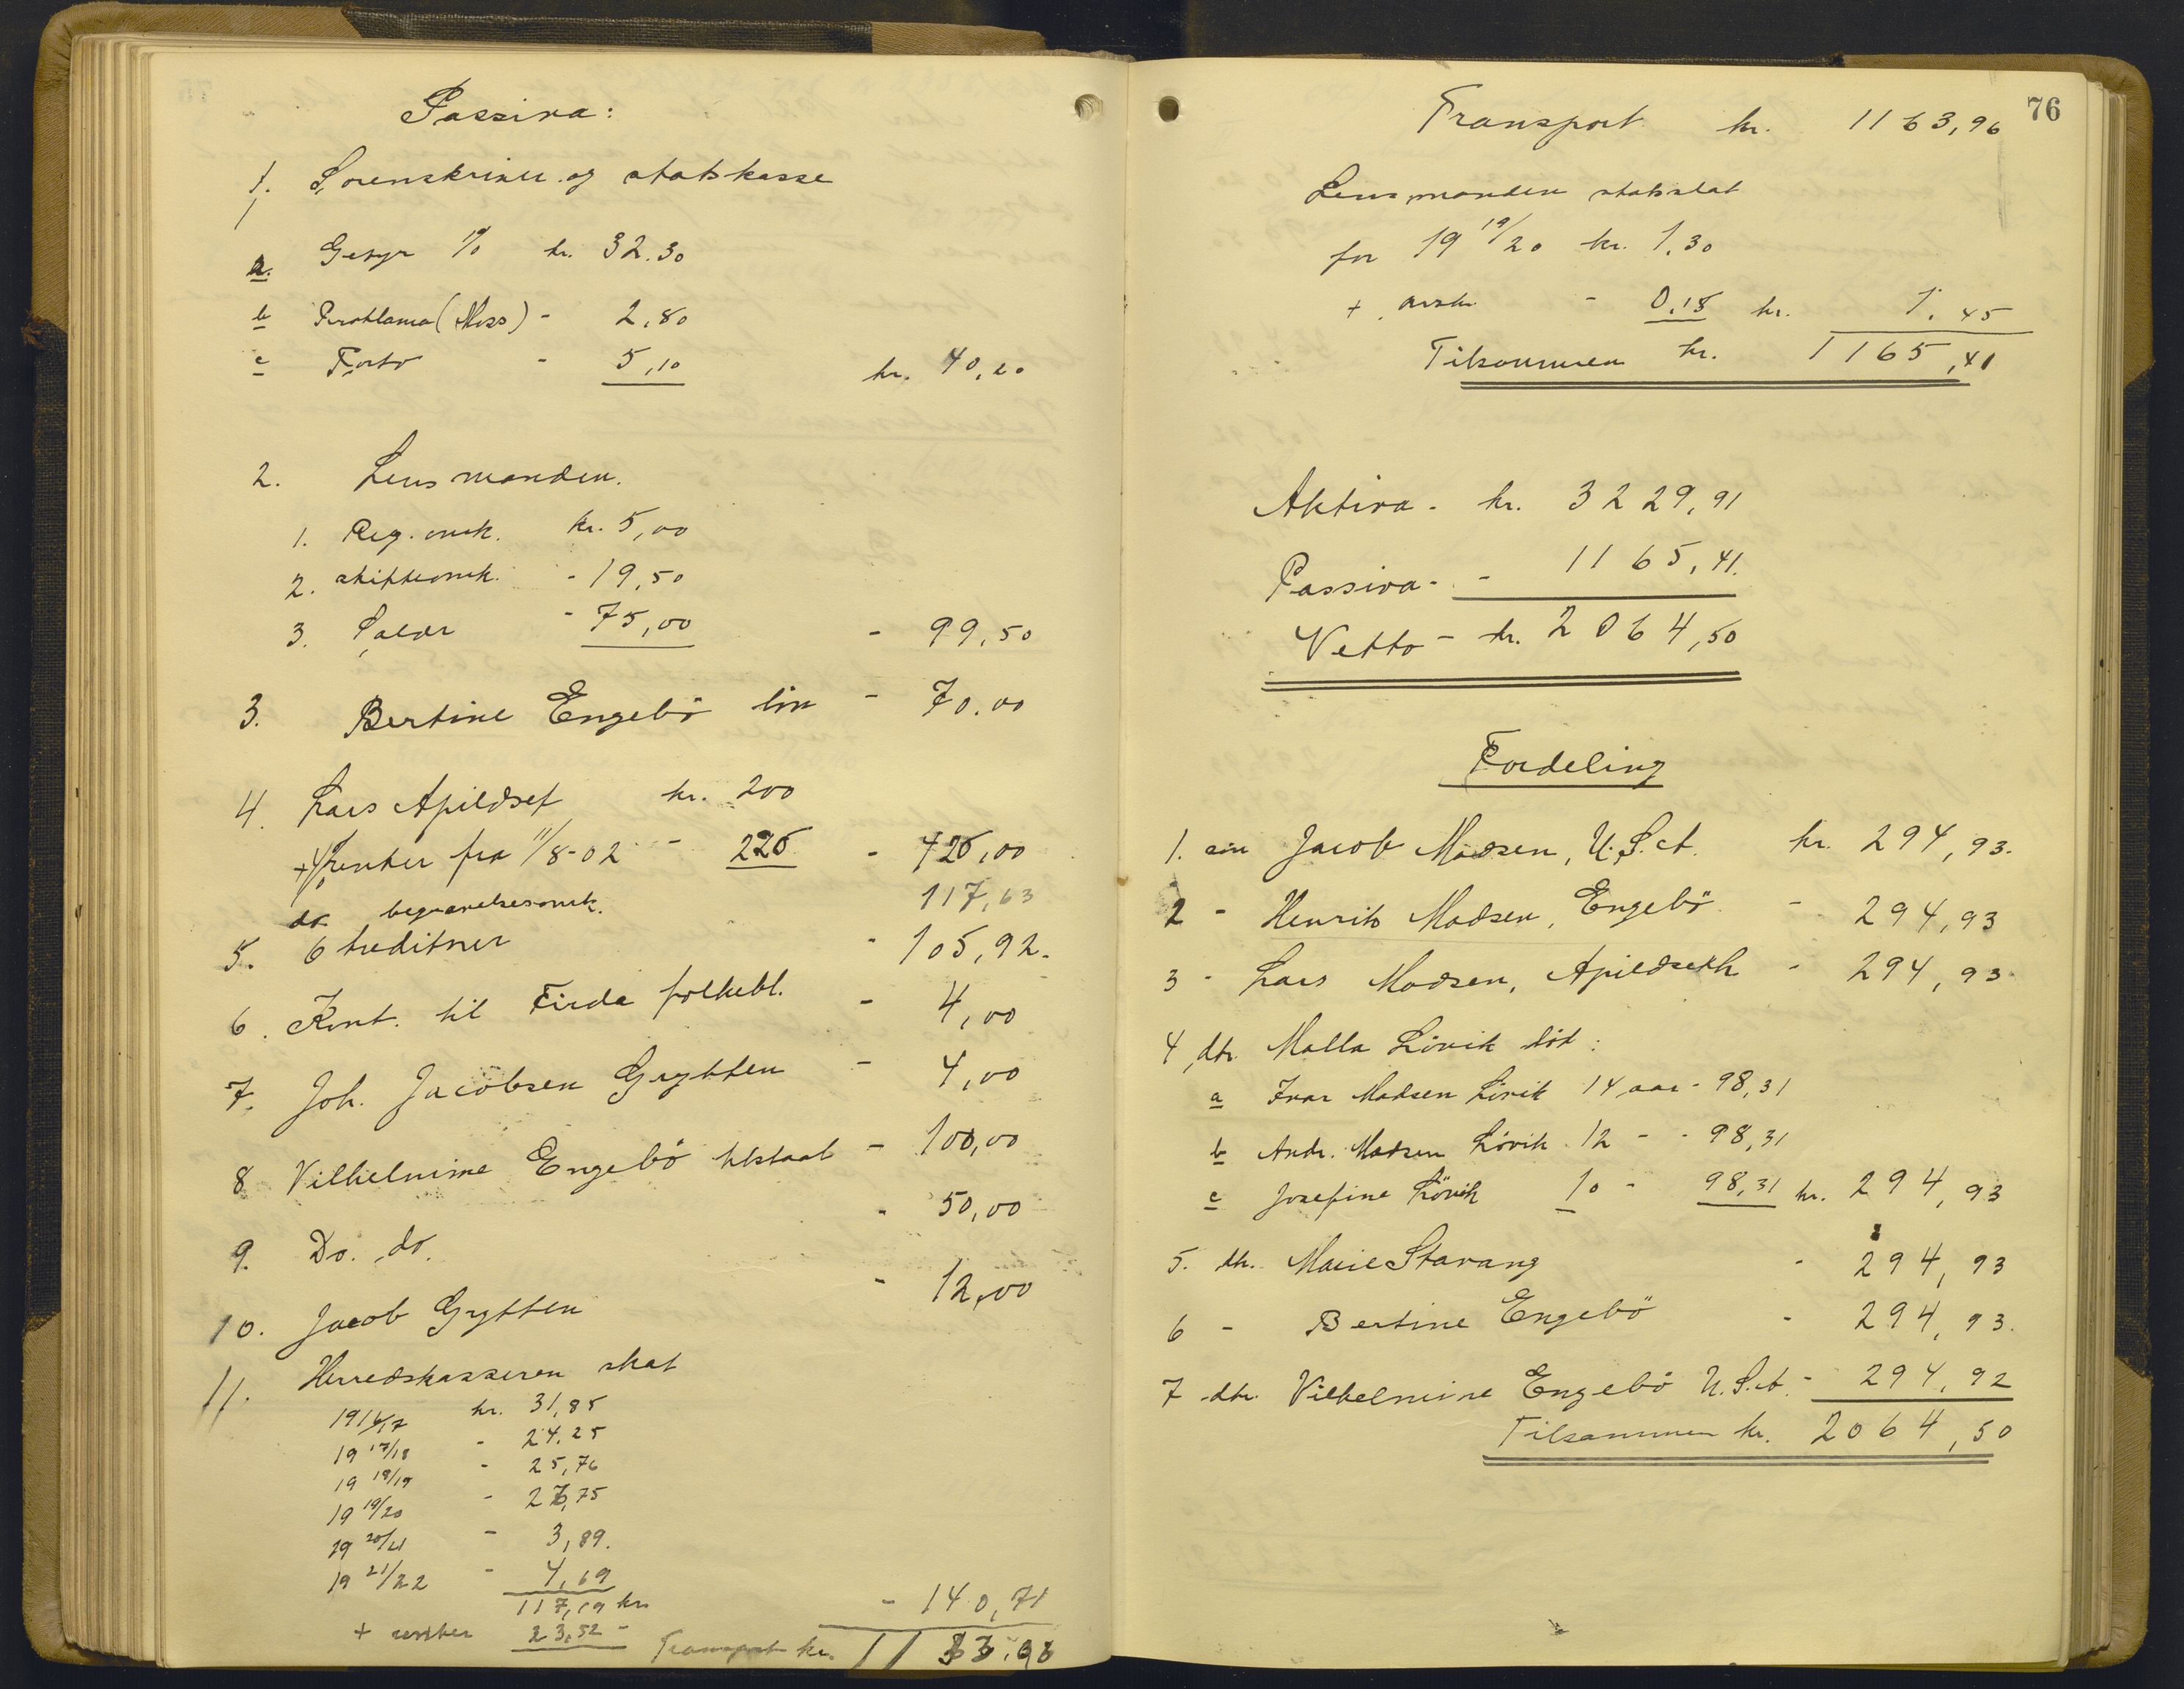 Passiva:
1. Sorenskriver og statskasse
a. Gebyr % kr. 32.30
b Proklama (Moss) - 2,80
c Porto - 5,10 kr. 40,20
2. Lensmanden.
1. Reg. omk. kr. 5,00
2. skifteomk. - 19,50
3. Salær - 75,00 - 99,50
3. Bertine Engebö lön - 70.00
4. Lars Apildset kr. 200
+ 4% renter fra 11/8-02 - 226 - 426,00
do begravelsesomk. 117,63
5. 6 kreditorer - 105,92.
6. Kont. til Firda folkebl. - 4,00
7. Joh. Jacobsen Grytten - 4,00
8 Vilhelmine Engebö tilstaat - 100,00
9. Do. do. - 50,00
10. Jacob Grytten - 12,00
11. Herredskasseren skat
1916/17 kr. 31,85
19 17/18 - 24.25
19 18/19 - 25,76
19 19/20 - 26,75
19 20/21 - 3,89.
19 21/22 - 4,69
117,19 kr. - 140,71
+ renter 23,52 - Transport kr. 1163.96
76
Transport kr. 1163,96
Lensmanden statsskat
for 19 19/20 kr. 1.30
+ - 0,15 kr. 1.45
Tilsammen kr. 1165,41
Aktiva - kr. 3229,91
Passiva - - 1165,41.
Netto - kr. 2064,50
Fordeling
1. sön Jacob Madsen, U.S.A. kr. 294,93.
2 - Henrik Madsen, Engebö - 294,93
3 - Lars Madsen, Apildseth - 294,93
4, dtr. Malla Lövik död:
a Ivar Madsen Lövik 14 aar - 98,31
b Andr. Madsen Lövik 12 - - 98,31
c Josefine Lövik 10 - 98,31 kr. 294,93
5. dtr. Marie Stavang - 294,93
6 - Bertine Engebö - 294,93.
7 dtr. Vilhelmine Engebö U.S.A. - 294,92
Tilsammen kr. 2064,50